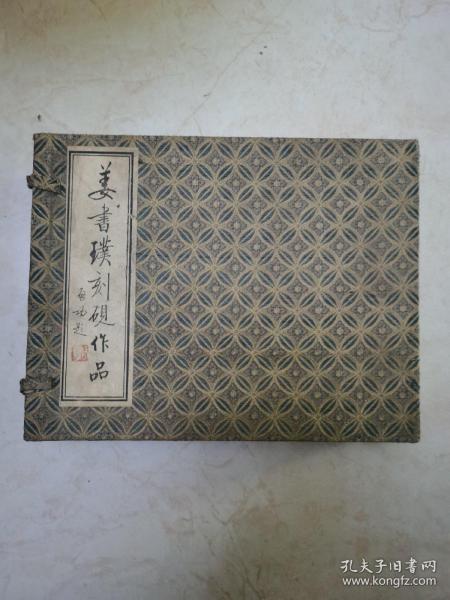 姜书璞刻砚作品
启功题
孔夫子旧书网
www.kongfz.com